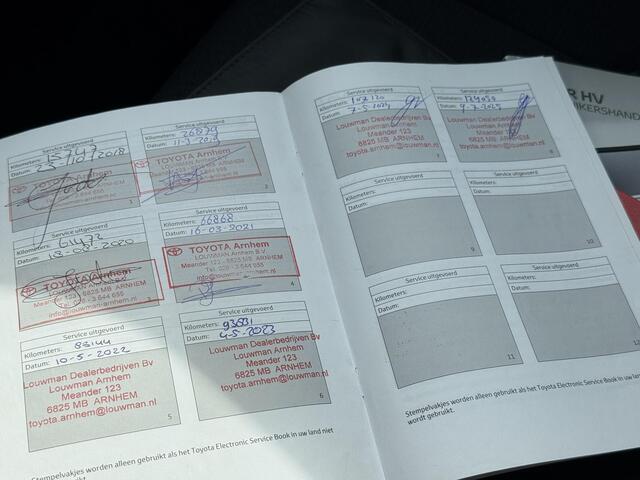 Service uitgevoerd
Kilometers:
Datum: 2018
TOYOTA Arnhem
1
Service uitgevoerd
Kilometers: 26879
Datum:
TOYOTA Arnhem
2
Service uitgevoerd
Kilometers:
Datum: 18-03-2020
TOYOTA Arnhem
Meander 123 - 6825 MB ARNHEM
info@louwman-arnhem.nl
3
Service uitgevoerd
Kilometers: 66868
Datum: 16-03-2021
TOYOTA Arnhem
LOUWMAN Arnhem B.V.
Meander 123 - 6825 MB ARNHEM
info@louwman-arnhem.nl
4
Service uitgevoerd
Kilometers: 83144
Datum: 10-5-2022
Louwman Dealerbedrijven Bv
Louwman Arnhem
Meander 123
6825 MB ARNHEM
toyota.arnhem@louwman.nl
5
Service uitgevoerd
Kilometers: 93831
Datum: 4-5-2023
Louwman Dealerbedrijven Bv
Louwman Arnhem
Meander 123
6825 MB ARNHEM
toyota.arnhem@louwman.nl
6
Stempelvakjes worden alleen gebruikt als het Toyota Electronic Service Book in uw land niet
Service uitgevoerd
Kilometers: 107120
Datum: 7-5-2024
Louwman Dealerbedrijven Bv
Louwman Arnhem
Meander 123
6825 MB ARNHEM
toyota.arnhem@louwman.nl
7
Service uitgevoerd
Kilometers:
Datum: 9-7-2025
Louwman Dealerbedrijven Bv
Louwman Arnhem
Meander 123
6825 MB ARNHEM
toyota.arnhem@louwman.nl
8
Service uitgevoerd
Kilometers:
Datum:
9
Service uitgevoerd
Kilometers:
Datum:
10
Service uitgevoerd
Kilometers:
Datum:
11
Service uitgevoerd
Kilometers:
Datum:
12
Stempelvakjes worden alleen gebruikt als het Toyota Electronic Service Book in uw land niet
wordt gebruikt.
R HV